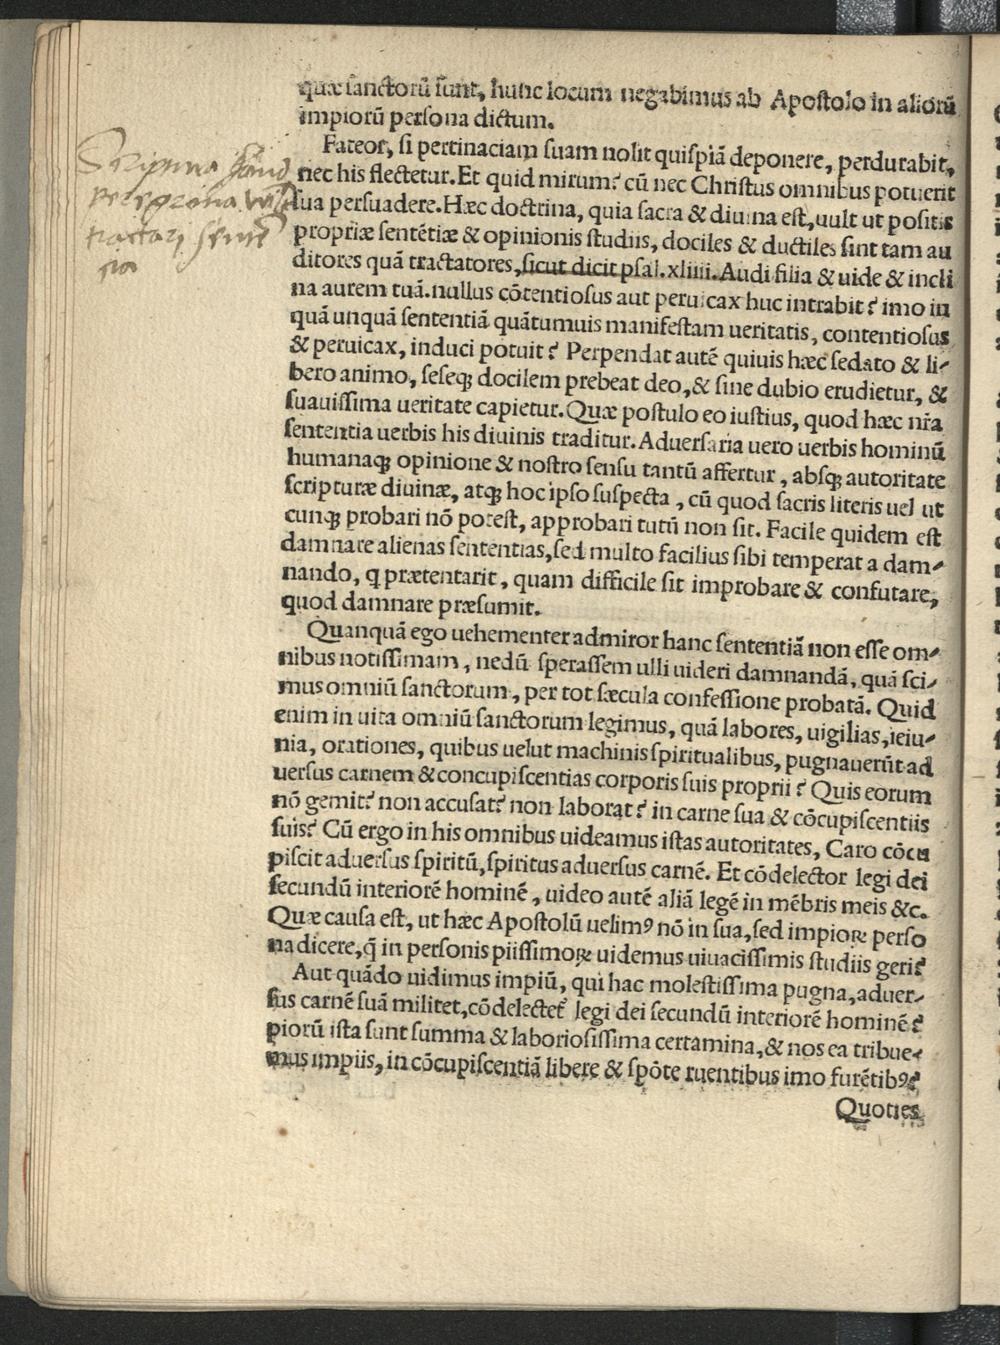 quæ sanctorũ sunt, hunc locum negabimus ab Apostolo in aliorũ
impiorũ persona dictum.
Fateor, si pertinaciam suam nolit quispiã deponere, perdurabit,
nec his flectetur. Et quid mirum? cũ nec Christus omnibus potuerit
sua persuadere. Hæc doctrina, quia sacra & diuina est, uult ut positis
propriæ sentẽtiæ & opinionis studiis, dociles & ductiles sint tam au
ditores quã tractatores, sicut dicit psal. xliiii. Audi filia & uide & incli
na aurem tuã. nullus cõtentiosus aut peruicax huc intrabit? imo in
quã unquã sententiã quãtumuis manifestam ueritatis, contentiosus
& peruicax, induci potuit? Perpendat autẽ quiuis hæc sedato & li-
bero animo, seseq; docilem prebeat deo, & sine dubio erudietur, &
suauissima ueritate capietur. Quæ postulo eo iustius, quod hæc nr̃a
sententia uerbis his diuinis traditur. Aduersaria uero uerbis hominũ
humanaq; opinione & nostro sensu tantũ affertur, absq; autoritate
scripturæ diuinæ, atq; hoc ipso suspecta, cũ quod sacris literis uel ut
cunq; probari nõ potest, approbari tutũ non sit. Facile quidem est
damnare alienas sententias, sed multo facilius sibi temperat a dam-
nando, q prætentarit, quam difficile sit improbare & confutare,
quod damnare præsumit.
Quanquã ego uehementer admiror hanc sententiã non esse om-
nibus notissimam, nedũ sperassem ulli uideri damnandã, quã sci-
mus omniũ sanctorum, per tot sæcula confessione probatã. Quid
enim in uita omniũ sanctorum legimus, quã labores, uigilias, ieiu-
nia, orationes, quibus uelut machinis spiritualibus, pugnauerũt ad
uersus carnem & concupiscentias corporis suis proprii? Quis eorum
nõ gemit? non accusat? non laborat? in carne sua & cõcupiscentiis
suis? Cũ ergo in his omnibus uideamus istas autoritates, Caro cõcu
piscit aduersus spiritũ, spiritus aduersus carnẽ. Et cõdelector legi dei
secundũ interiorẽ hominẽ, uideo autẽ aliã legẽ in mẽbris meis &c.
Quæ causa est, ut hæc Apostolũ uelimꝰ nõ in sua, sed impioꝝ perso
na dicere, q̃ in personis piissimoꝝ uidemus uiuacissimis studiis geri?
Aut quãdo uidimus impiũ, qui hac molestissima pugna, aduer-
sus carnẽ suã militet, cõdelectet᷑ legi dei secundũ interiorẽ hominẽ?
piorũ ista sunt summa & laboriosissima certamina, & nos ea tribue-
mus impiis, in cõcupiscentiã libere & spõte ruentibus imo furẽtibꝰ?
Quoties